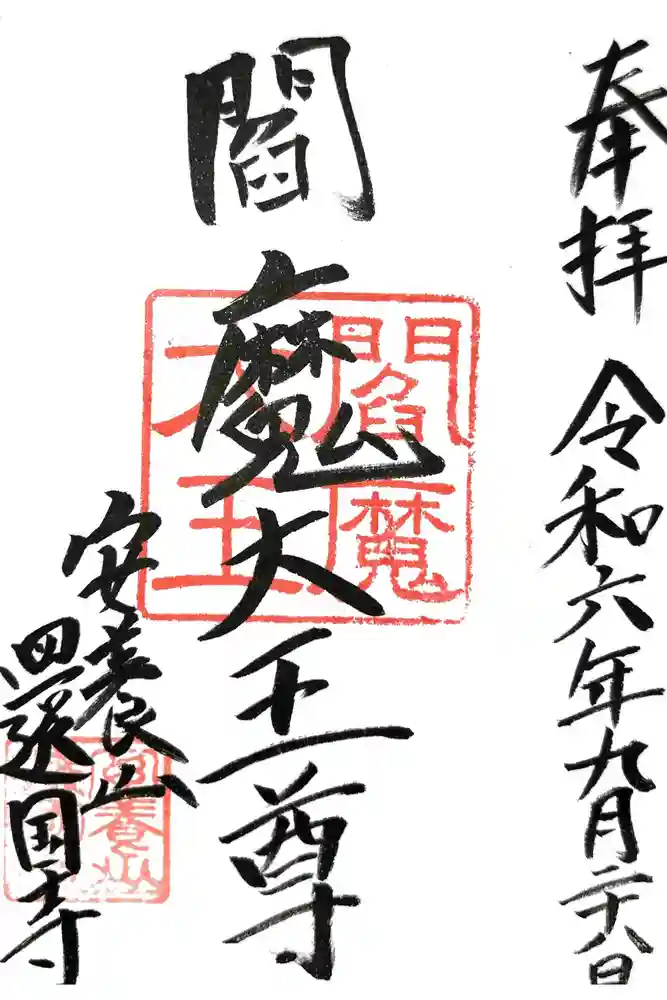 奉拝 令和六年九月二十八日
閻魔大王尊
安養山
還国寺
閻魔
大王
安養山